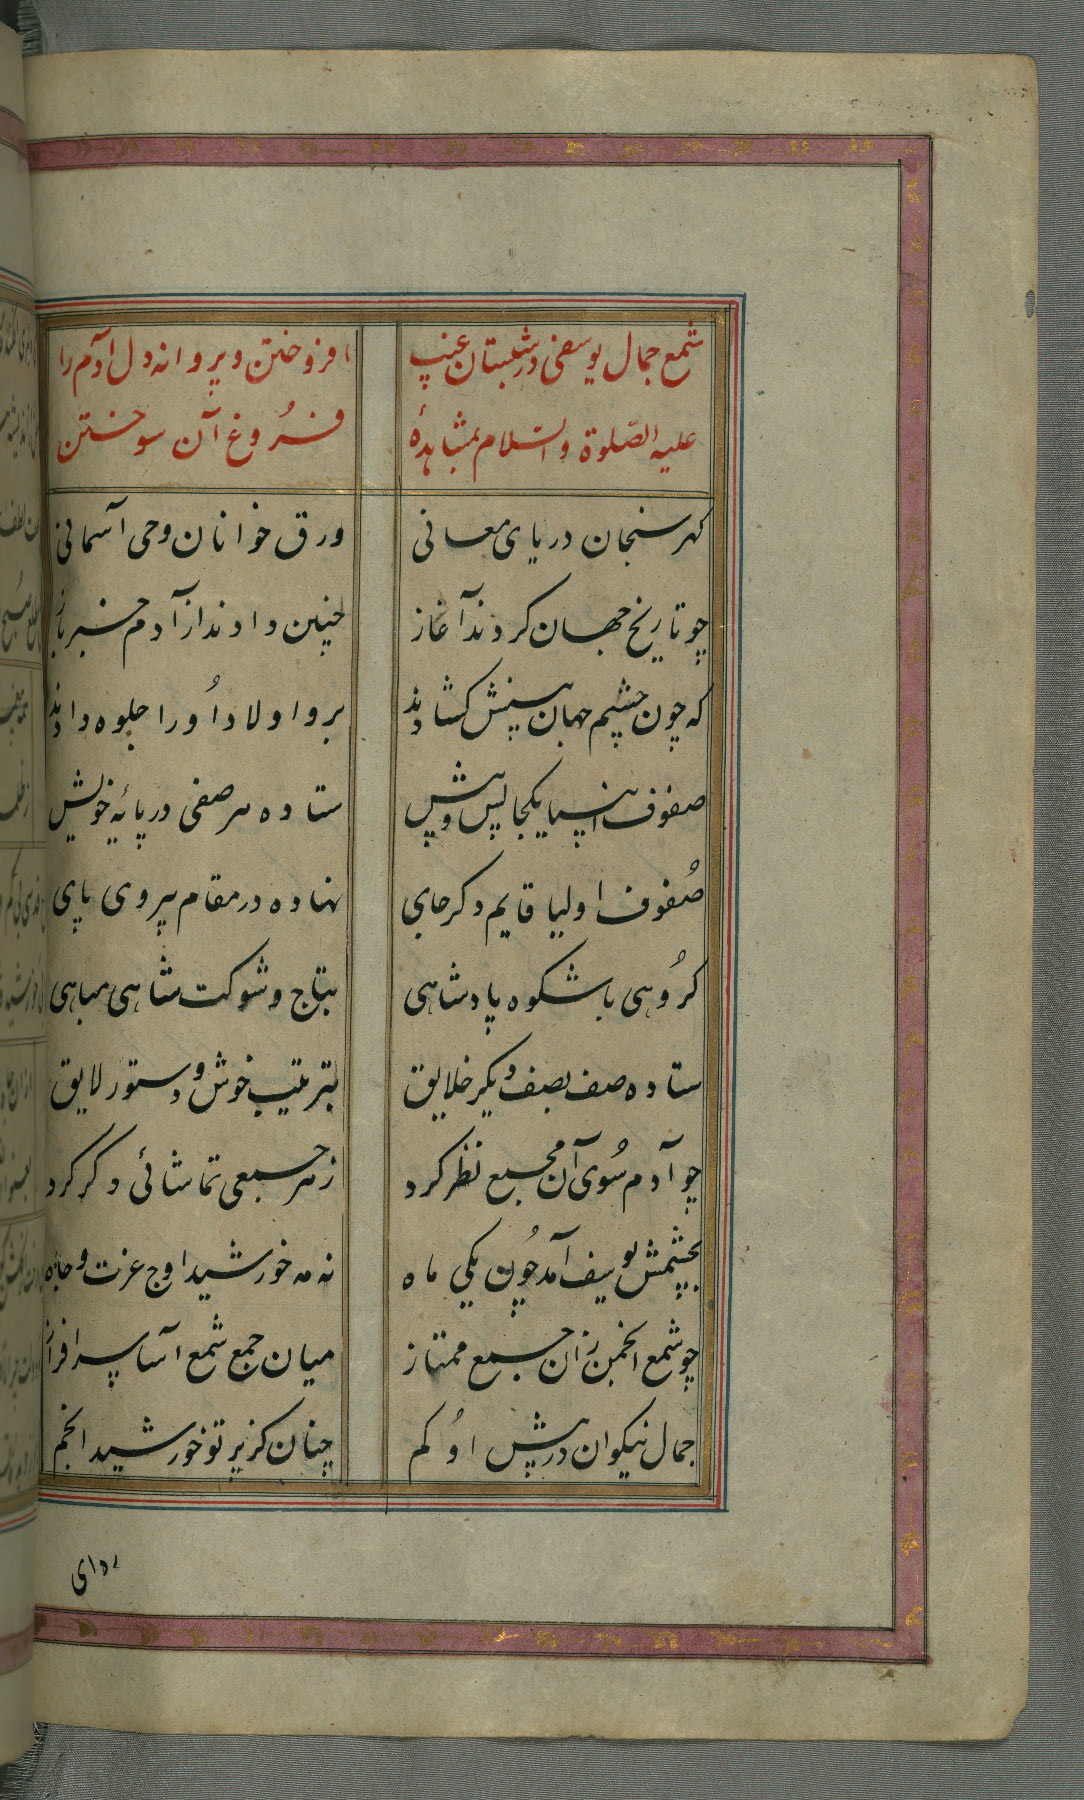 شمع جمال یوسفی در شبستان غیب افروختن و پروانه دل آدم را
علیه الصّلوة والسّلام بمشاهدهٔ فُروغ آن سوختن
کهر سنجان دریای معانی ورق خوانان وحی آسمانی
چو تاریخ جهان کردند آغاز چنین دادند از آدم خبر باز
که چون چشم جهان بینش کشادند برو اولاد اُو را جلوه دادند
صفوف انبیا یکجا پس و پیش ستاده هر صفی در پایهٔ خویش
صُفوف اولیا قایم دکر جای نهاده در مقام پیروی پای
کرُوهی با شکوه پادشاهی بتاج و شوکت شاهی مباهی
ستاده صف بصف دیکر خلایق بترتیب خوش و دستور لایق
چو آدم سُوی آن مجمع نظر کرد ز هر جمعی تماشائی دکر کرد
بچشمش یوسف آمد چُون یکی ماه نه مه خورشید اوج عزت و جاه
چو شمع انجمن زان جمع ممتاز میان جمع شمع آسا سرافراز
جمال نیکوان در پیش اوُ کم چنان کز پرتو خورشید انجم
ردای